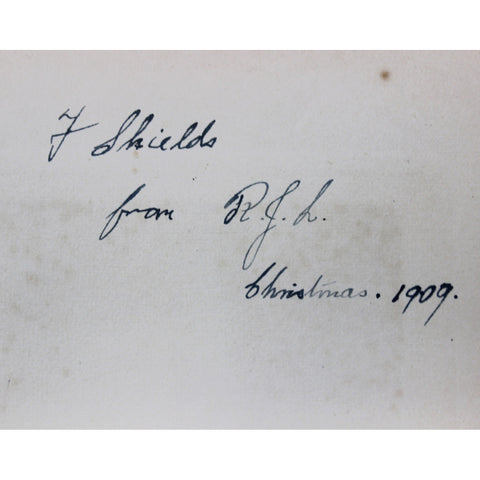 F Shields
from R.J.L.
Christmas. 1909.